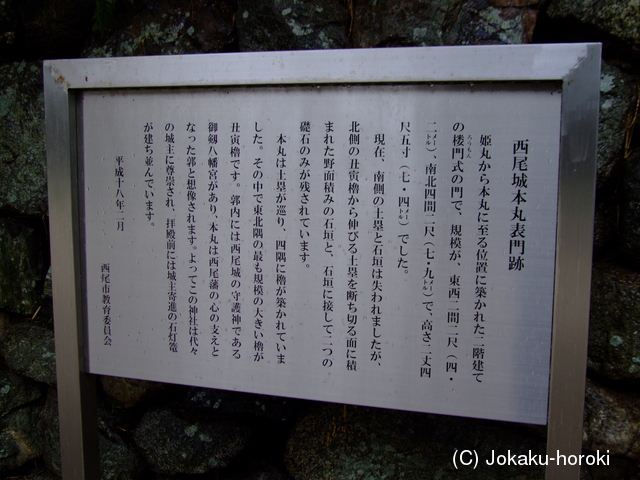 西尾城本丸表門跡
姫丸から本丸に至る位置に築かれた二階建て
の楼門式の門で、規模が、東西二間二尺（四・
ろうもん
二メートル）、南北四間二尺（七・九メートル）で、高さ二丈四
尺五寸（七・四メートル）でした。
現在、南側の土塁と石垣は失われましたが、
北側の丑寅櫓から伸びる土塁を断ち切る面に積
まれた野面積みの石垣と、石垣に接して二つの
礎石のみが残されています。
本丸は土塁が巡り、四隅に櫓が築かれていま
した。その中で東北隅の最も規模の大きい櫓が
丑寅櫓です。郭内には西尾城の守護神である
御剱八幡宮があり、本丸は西尾藩の心の支えと
なった郭と想像されます。よってこの神社は代々
の城主に尊崇され、拝殿前には城主寄進の石灯篭
が建ち並んでいます。
平成十八年二月
西尾市教育委員会
(C) Jokaku-horoki